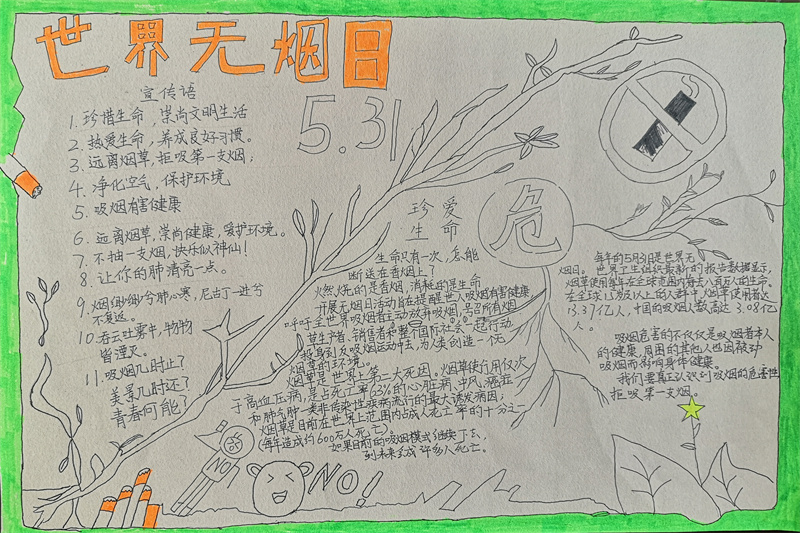 世界无烟日
5.31
宣传语
1. 珍惜生命，崇尚文明生活
2. 热爱生命，养成良好习惯。
3. 远离烟草，拒吸第一支烟；
4. 净化空气，保护环境
5. 吸烟有害健康
6. 远离烟草，崇尚健康，爱护环境。
7. 不抽一支烟，快乐似神仙！
8. 让你的肺清亮一点。
9. 烟细细兮肺心寒，尼古丁一进兮
不复返。
10. 吞云吐雾书
皆湮灭。
11. 吸烟几时止？
美景几时还？
青春何能？
珍爱
生命
危
生命只有一次，怎能
断送在香烟上？
燃烧的是香烟，消耗的是生命
开展无烟日活动旨在提醒世人吸烟有害健康，
呼吁全世界吸烟者主动放弃吸烟，号召所有烟
草生产者、销售者和整个国际社会一起行动
投身到反吸烟运动中去，为人类创造一个无
烟草的环境。
烟草是世界上第二大死因。烟草使用仅次
于高血压病，是占死亡率63%的心脏病、中风、癌症
和肺气肿一类非传染性疾病流行的最大诱发病因；
烟草是目前在世界上范围内占成人死亡率的十分之一
(每年造成约600万人死亡)。
如果目前的吸烟模式继续下去，
到未来会成许多人死亡。
每年的5月31日是世界无
烟日。世界卫生组织最新的报告数据显示，
烟草使用每年在全球范围内海去八百万人的生命。
在全球15岁及以上的人群中，烟草使用者达
13.37亿人，中国的吸烟人数高达3.08亿
人。
吸烟危害的不仅仅是吸烟者本人
的健康，周围的其他人也因被动
吸烟而影响身体健康。
我们要真正认识到吸烟的危害性
拒吸第一支烟。
NO
NO!